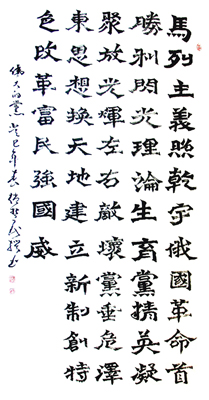 馬列主義照乾宇俄國革命首
勝利閃光理論生育黨精英凝
聚放光輝左右敵壞黨垂危澤
東思想換天地建立新制創特
色改革富民強國威
偉大的黨 癸巳年春